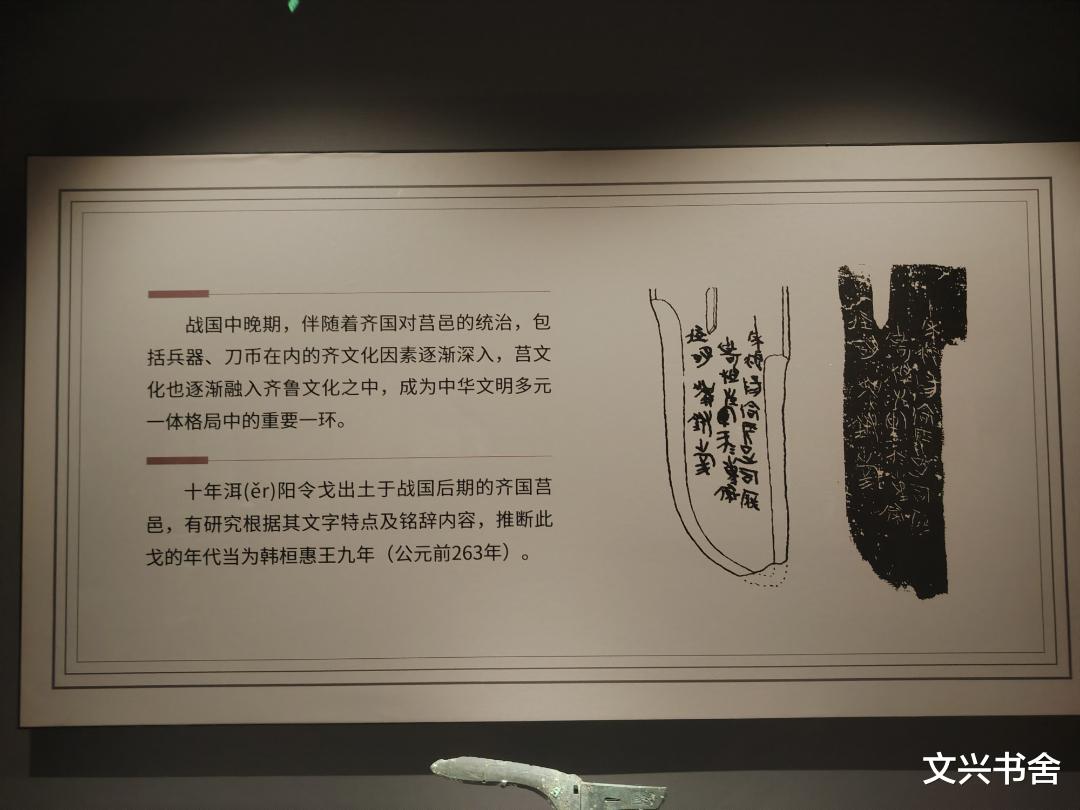 战国中晚期，伴随着齐国对莒邑的统治，包
括兵器、刀币在内的齐文化因素逐渐深入，莒文
化也逐渐融入齐鲁文化之中，成为中华文明多元
一体格局中的重要一环。
十年洱(ěr)阳令戈出土于战国后期的齐国莒
邑，有研究根据其文字特点及铭辞内容，推断此
戈的年代当为韩桓惠王九年（公元前263年）。
文兴书舍